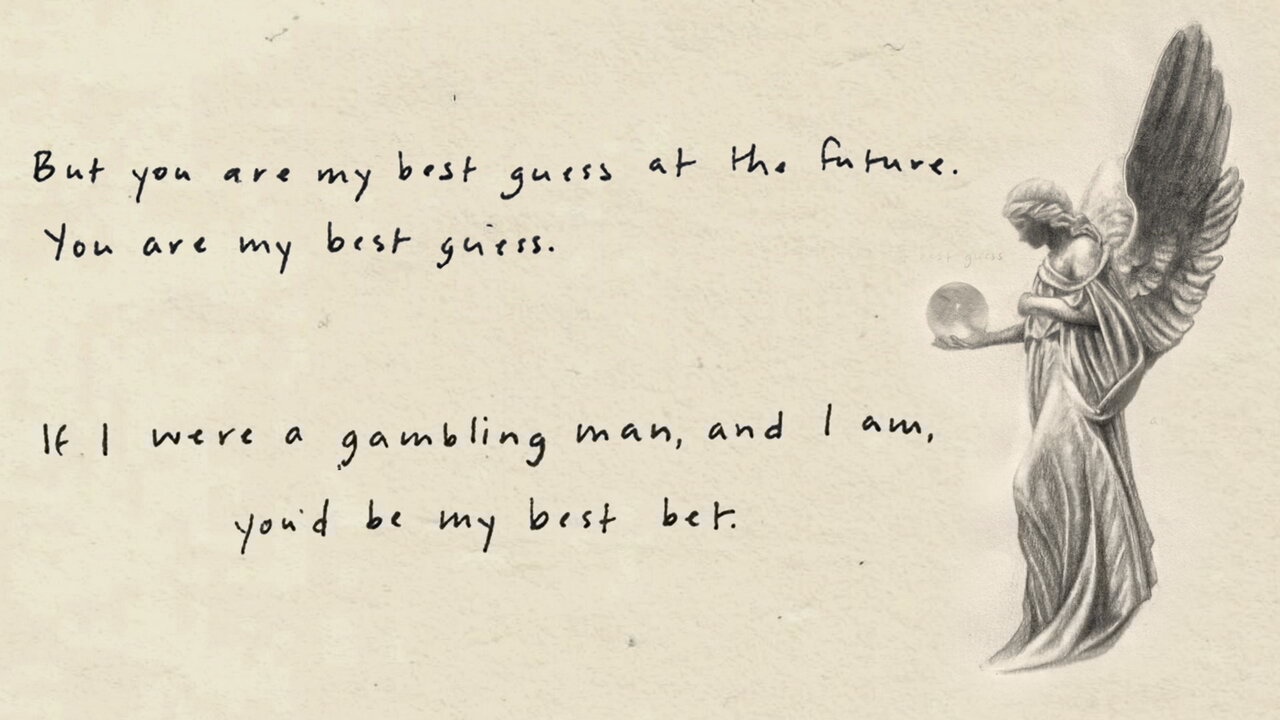 But you are my best guess at the future.
You are my best guess.
best guess
If I were a gambling man, and I am,
you'd be my best bet.